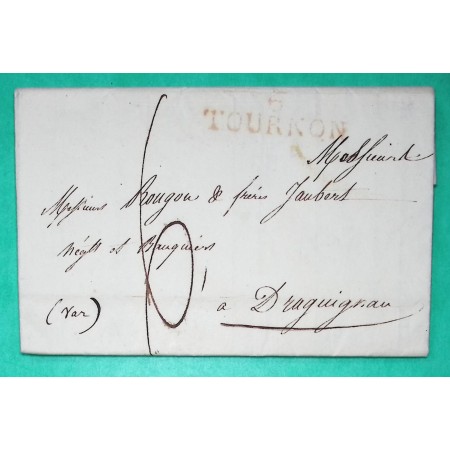 6
TOURNON
Messieurs
Messieurs Rougon & frères Jaubert
négts et Banquiers
6
(Var)
a Draguignan